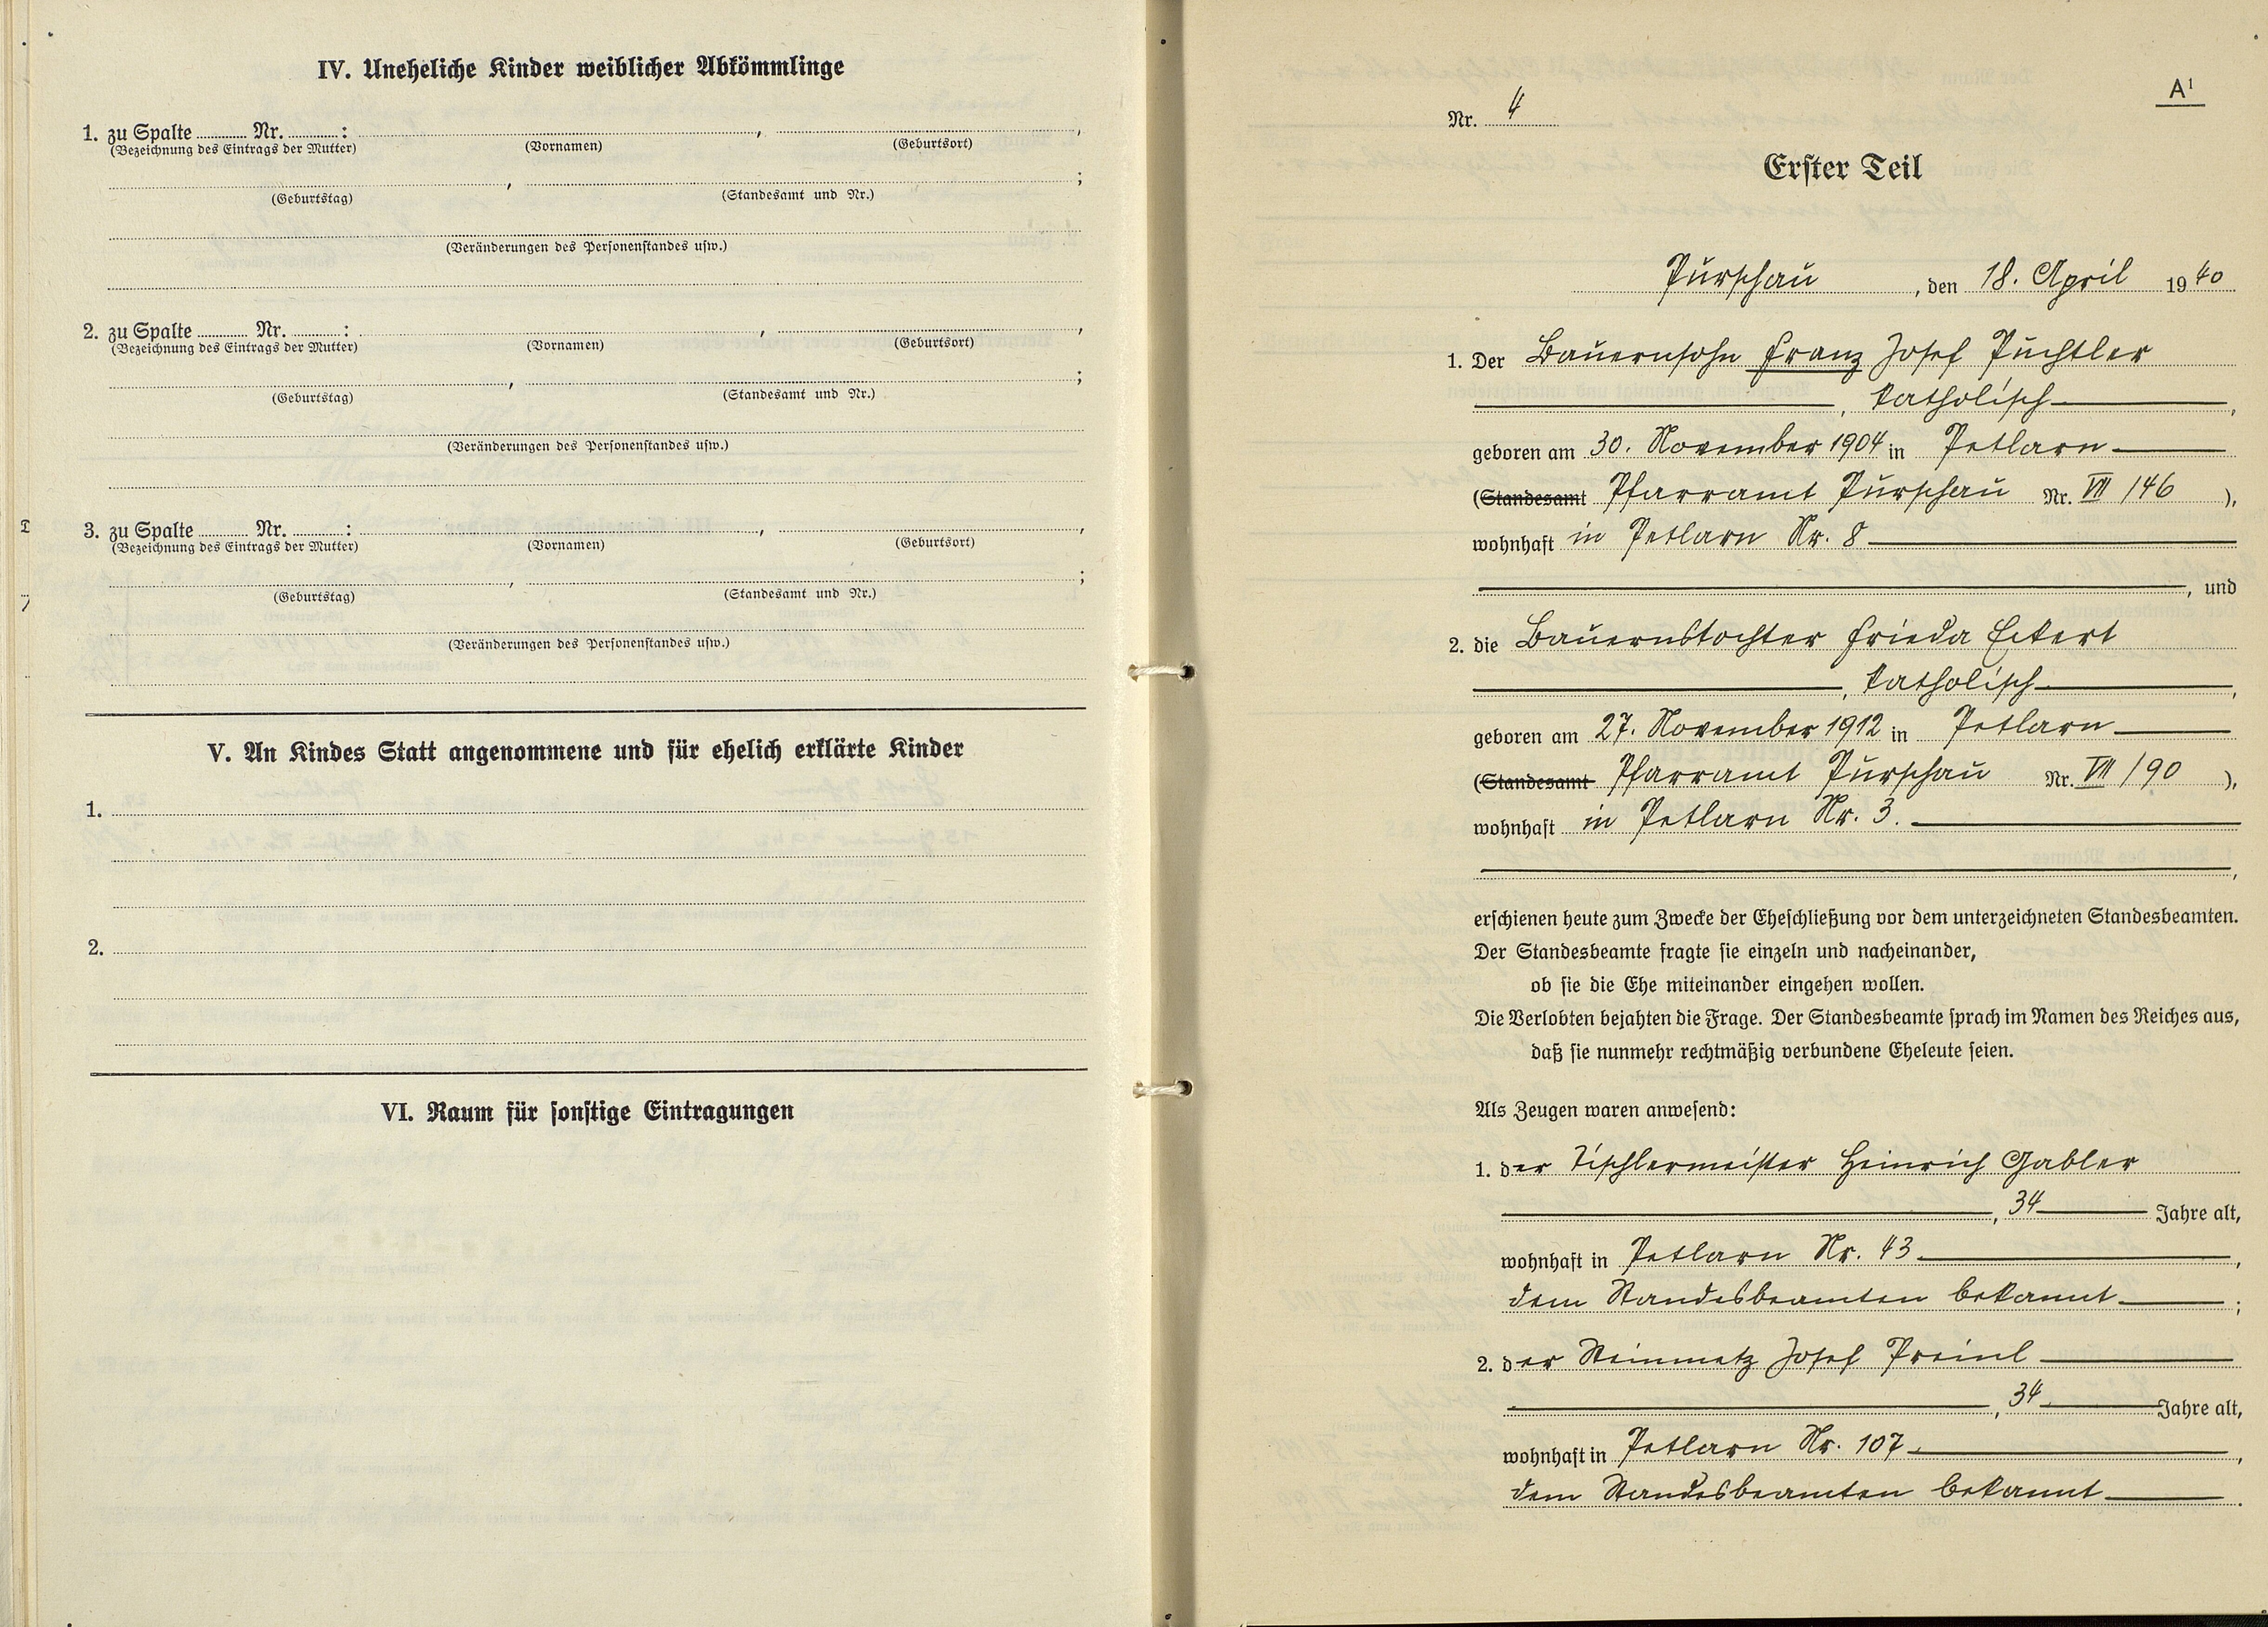 IV. Uneheliche Kinder weiblicher Abkömmlinge
1. zu Spalte ............ Nr. ............ : , ,
(Bezeichnung des Eintrags der Mutter) (Vornamen) (Geburtsort)
, ;
(Geburtstag) (Standesamt und Nr.)
(Veränderungen des Personenstandes usw.)
2. zu Spalte ............ Nr. ............ : , ,
(Bezeichnung des Eintrags der Mutter) (Vornamen) (Geburtsort)
, ;
(Geburtstag) (Standesamt und Nr.)
(Veränderungen des Personenstandes usw.)
3. zu Spalte ............ Nr. ............ : , ,
(Bezeichnung des Eintrags der Mutter) (Vornamen) (Geburtsort)
, ;
(Geburtstag) (Standesamt und Nr.)
(Veränderungen des Personenstandes usw.)
V. An Kindes Statt angenommene und für ehelich erklärte Kinder
1.
2.
VI. Raum für sonstige Eintragungen
A1
Nr. 4
Erster Teil
Purschau, den 18. April 1940
1. Der Bauernsohn Franz Josef Puchtler
, katholisch,
geboren am 30. November 1904 in Petlarn
(Standesamt Pfarramt Purschau Nr. VII/146),
wohnhaft in Petlarn Nr. 8
, und
2. die Bauernstochter Frieda Eckert
, katholisch,
geboren am 27. November 1912 in Petlarn
(Standesamt Pfarramt Purschau Nr. VII/90),
wohnhaft in Petlarn Nr. 3.
,
erschienen heute zum Zwecke der Eheschließung vor dem unterzeichneten Standesbeamten.
Der Standesbeamte fragte sie einzeln und nacheinander,
ob sie die Ehe miteinander eingehen wollen.
Die Verlobten bejahten die Frage. Der Standesbeamte sprach im Namen des Reiches aus,
daß sie nunmehr rechtmäßig verbundene Eheleute seien.
Als Zeugen waren anwesend:
1. der Tischlermeister Heinrich Gabler
, 34 Jahre alt,
wohnhaft in Petlarn Nr. 43,
dem Standesbeamten bekannt;
2. der Steinmetz Josef Preinl
, 34 Jahre alt,
wohnhaft in Petlarn Nr. 107,
dem Standesbeamten bekannt.